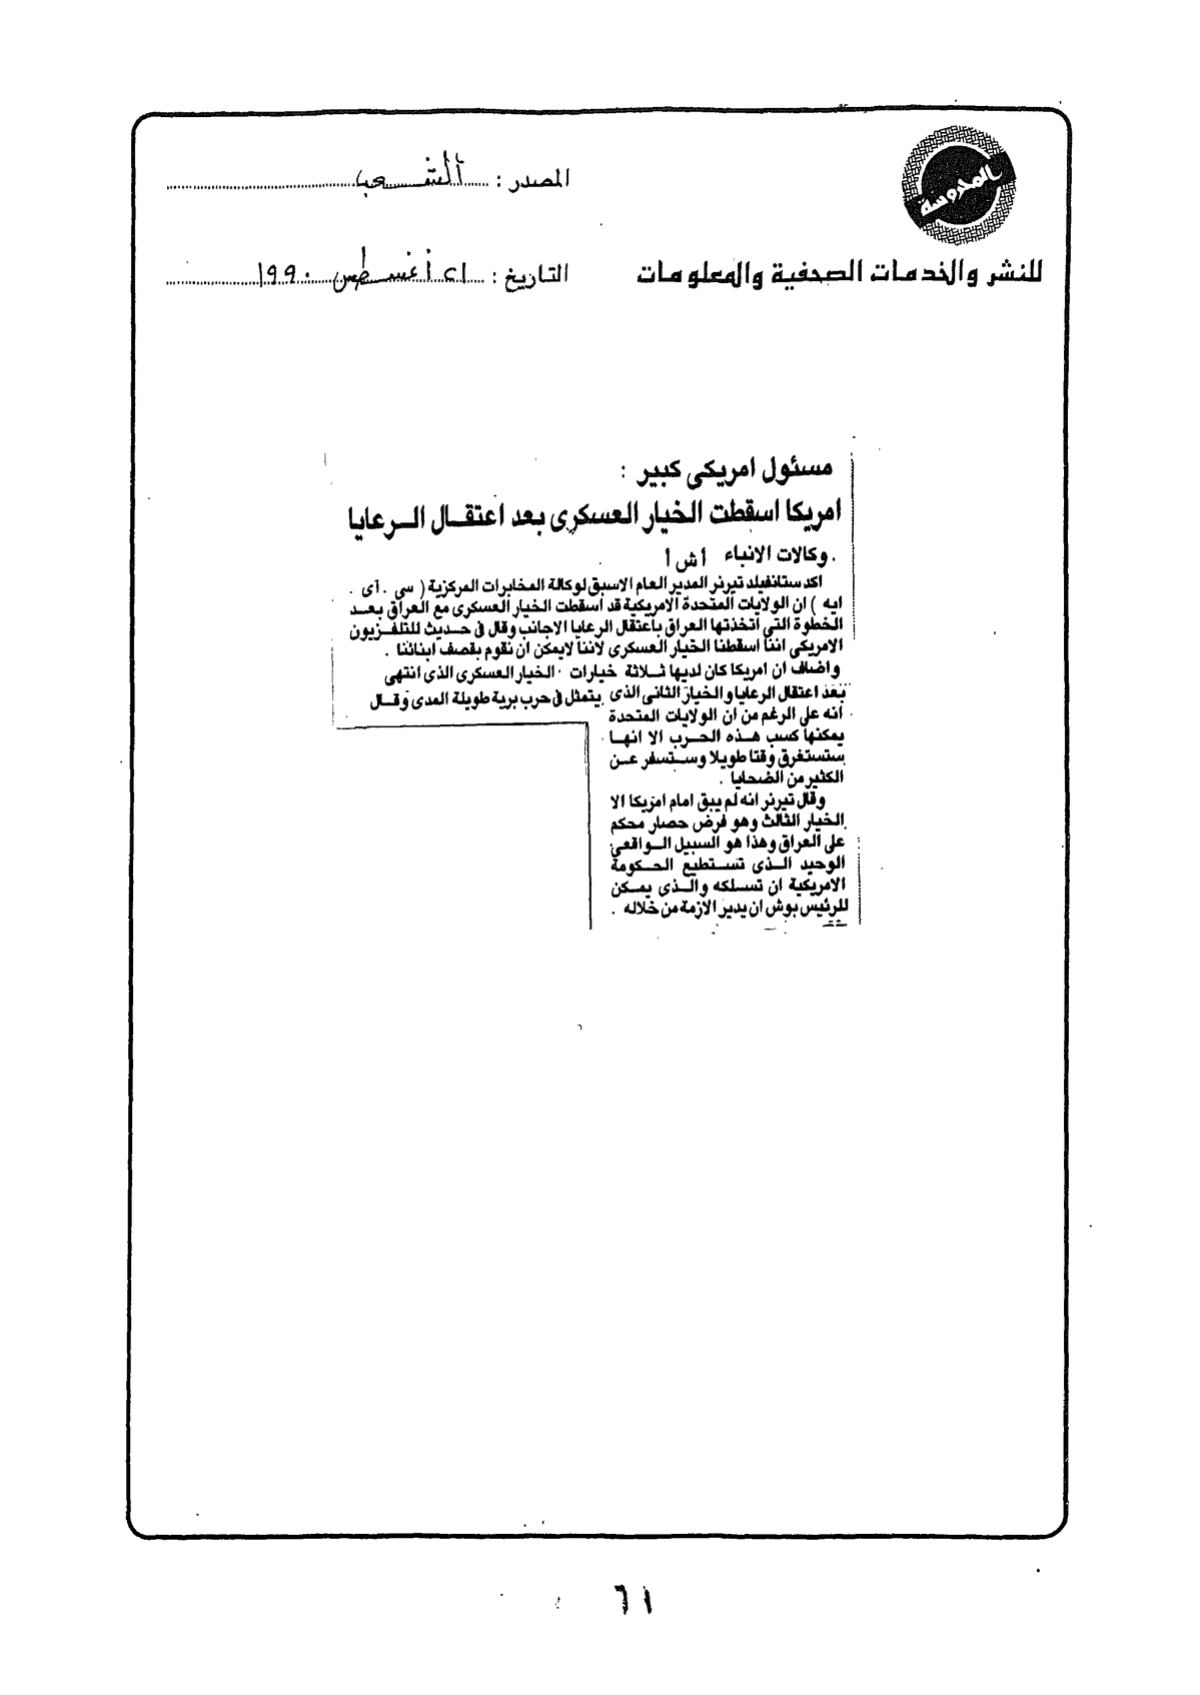 المحروسة
للنشر والخدمات الصحفية والمعلومات
المصدر : الشعب
التاريخ : ٢١ أغسطس ١٩٩٠
مسئول امريكى كبير :
امريكا اسقطت الخيار العسكرى بعد اعتقال الرعايا
وكالات الانباء أ ش أ
اكد ستانفيلد تيرنر المدير العام الاسبق لوكالة المخابرات المركزية ( سى . آى .
ايه ) ان الولايات المتحدة الامريكية قد اسقطت الخيار العسكرى مع العراق بعد
الخطوة التى اتخذتها العراق باعتقال الرعايا الاجانب وقال فى حديث للتلفزيون
الامريكى اننا اسقطنا الخيار العسكرى لاننا لايمكن ان نقوم بقصف ابنائنا .
واضاف ان امريكا كان لديها ثلاثة خيارات الخيار العسكرى الذى انتهى
بعد اعتقال الرعايا والخيار الثانى الذى يتمثل فى حرب برية طويلة المدى وقال
انه على الرغم من ان الولايات المتحدة
يمكنها كسب هذه الحرب الا انها
ستستغرق وقتا طويلا وستسفر عن
الكثير من الضحايا .
وقال تيرنر انه لم يبق امام امريكا الا
الخيار الثالث وهو فرض حصار محكم
على العراق وهذا هو السبيل الواقعى
الوحيد الذى تستطيع الحكومة
الامريكية ان تسلكه والذى يمكن
للرئيس بوش ان يدير الازمة من خلاله .
٦١